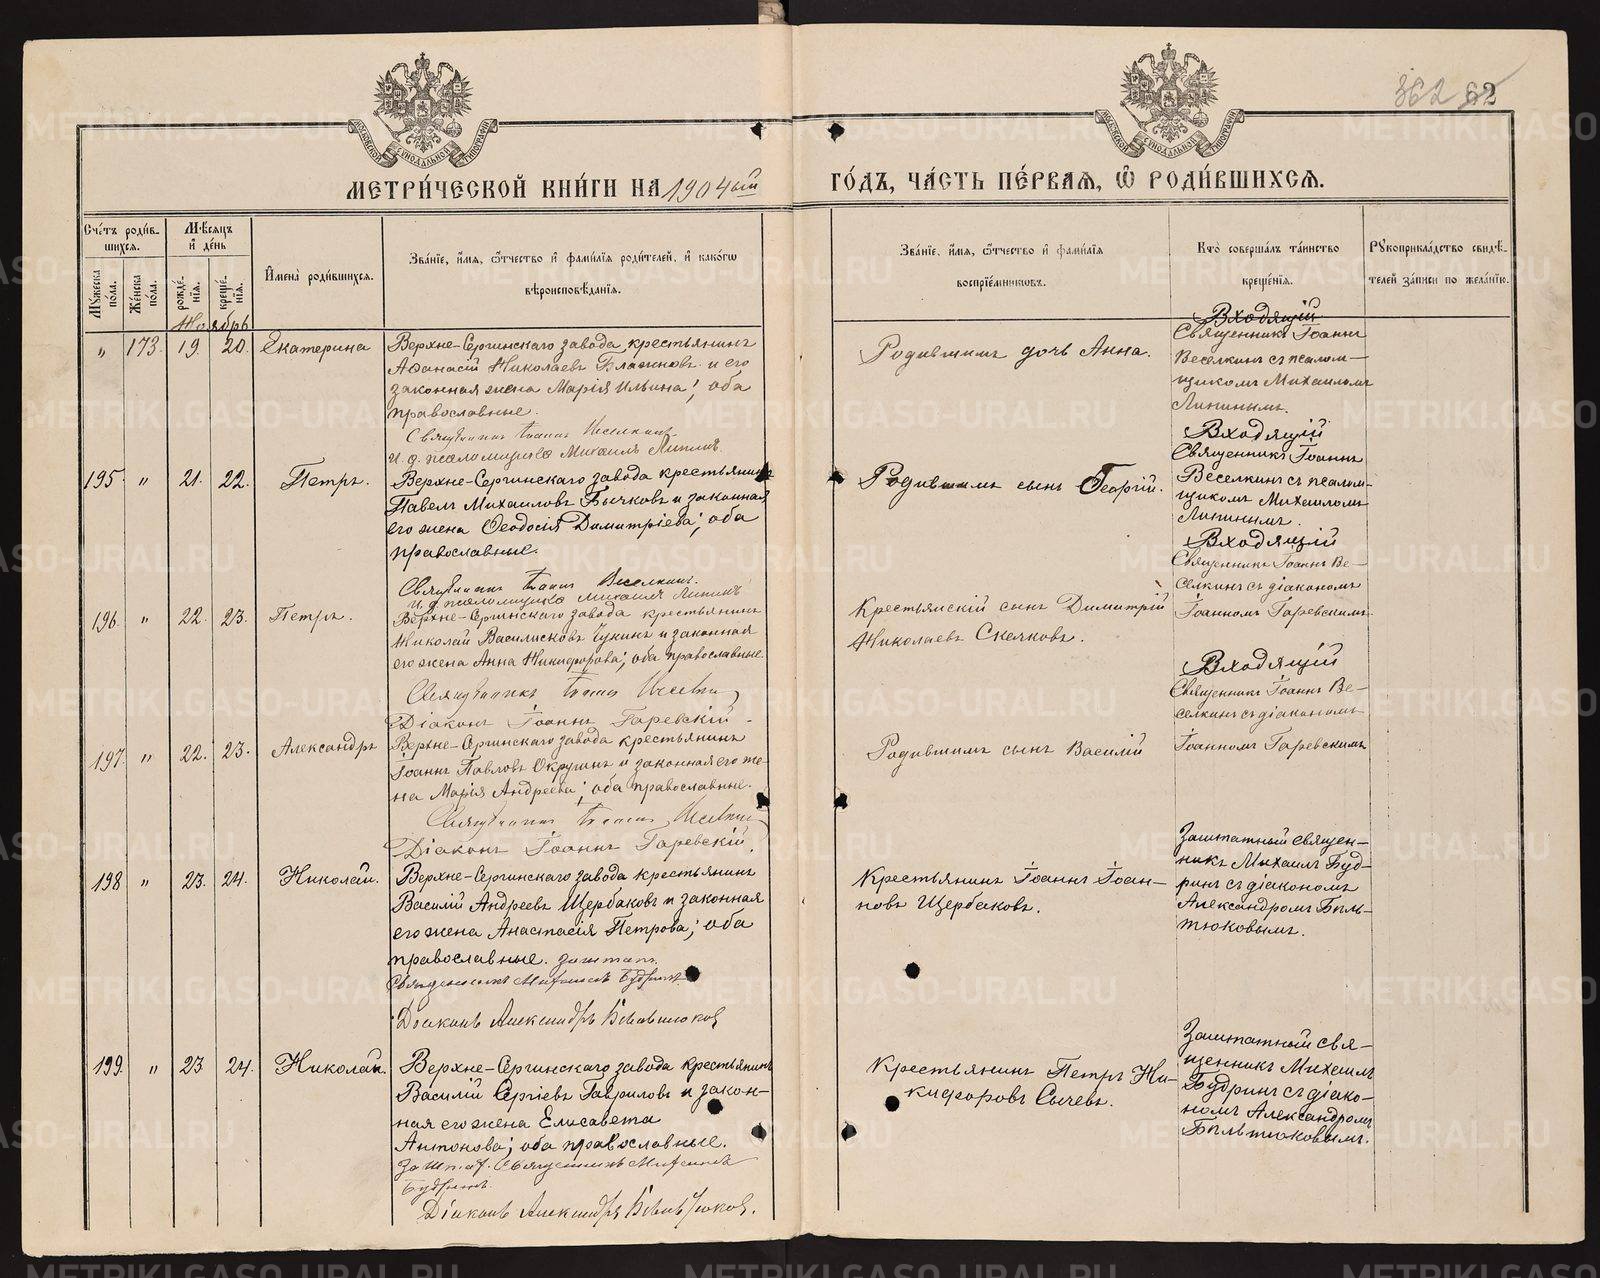 362 62
МЕТРИ́ЧЕСКОЙ КНИ́ГИ НА 1904ый ГО́ДЪ, ЧА́СТЬ ПЕ́РВАЯ, Ѡ РОДИ́ВШИХСЯ.
Сче́тъ роди́в-
шихся.
Мꙋ́жеска по́ла.
Же́нска по́ла.
Мѣ́сяцъ
и҆ де́нь
рожде́-
нія.
креще́-
нія.
И҆мена̀ роди́вшихся.
Зва́нїе, и҆́мя, ѻ҆́тчество и҆ фами́лїя роди́телей, и҆ како́гѡ
вѣроисповѣ́данїя.
Зва́нїе, и҆́мя, ѻ҆́тчество и҆ фами́лїя
воспрїе́мниковъ.
Кто̀ соверша́лъ та́инство
креще́нїя.
Рꙋкоприкла́дство свидѣ́-
телей за́писи по жела́нїю.
Ноябрь
„ 173. 19. 20. Екатерина
Верхне-Сергинскаго завода крестьянинъ
Аѳанасій Николаевъ Блажновъ и его
законная жена Марія Ильина; оба
православные.
Священникъ Іоаннъ Веселкинъ
И. д. псаломщика Михаилъ Липинъ
Родившимъ дочь Анна.
Входящій
Священникъ Іоаннъ
Веселкинъ съ псалом-
щикомъ Михаиломъ
Липинымъ.
195. „ 21. 22. Петръ.
Верхне-Сергинскаго завода крестьянинъ
Павелъ Михаиловъ Бычковъ и законная
его жена Ѳеодосія Димитріева; оба
православные.
Священникъ Іоаннъ Веселкинъ.
И. д. псаломщика Михаилъ Липинъ
Родившимъ сынъ Георгій.
Входящій
Священникъ Іоаннъ
Веселкинъ съ псалом-
щикомъ Михаиломъ
Липинымъ.
196. „ 22. 23. Петръ.
Верхне-Сергинскаго завода крестьянинъ
Николай Василисковъ Чукинъ и законная
его жена Анна Никифорова; оба православные.
Священникъ Іоаннъ Веселкинъ
Діаконъ Іоаннъ Гаревскій
Крестьянскій сынъ Димитрій
Николаевъ Скачковъ.
Входящій
Священникъ Іоаннъ Ве-
селкинъ съ діакономъ
Іоанномъ Гаревскимъ
197. „ 22. 23. Александръ
Верхне-Сергинскаго завода крестьянинъ
Іоаннъ Павловъ Окружинъ и законная его же-
на Марія Андреева; оба православные.
Священникъ Іоаннъ Веселкинъ
Діаконъ Іоаннъ Гаревскій.
Родившимъ сынъ Василій
Входящій
Священникъ Іоаннъ Ве-
селкинъ съ діакономъ
Іоанномъ Гаревскимъ
198 „ 23. 24. Николай.
Верхне-Сергинскаго завода крестьянинъ
Василій Андреевъ Щербаковъ и законная
его жена Анастасія Петрова; оба
православные. заштат.
Священникъ Михаилъ Будринъ
Діаконъ Александръ Бѣльтюковъ
Крестьянинъ Іоаннъ Іоан-
новъ Щербаковъ.
Заштатный священ-
никъ Михаилъ Буд-
ринъ съ діакономъ
Александромъ Бѣль-
тюковымъ.
199. „ 23 24. Николай.
Верхне-Сергинскаго завода крестьянинъ
Василій Сергіевъ Гавриловъ и закон-
ная его жена Елисавета
Антонова; оба православные.
Заштат. Священникъ Михаилъ
Будринъ.
Діаконъ Александръ Бѣльтюковъ.
Крестьянинъ Петръ Ни-
кифоровъ Сычевъ.
Заштатный свя-
щенникъ Михаилъ
Будринъ съ діако-
номъ Александромъ
Бѣльтюковымъ.
METRIKI.GASO-URAL.RU